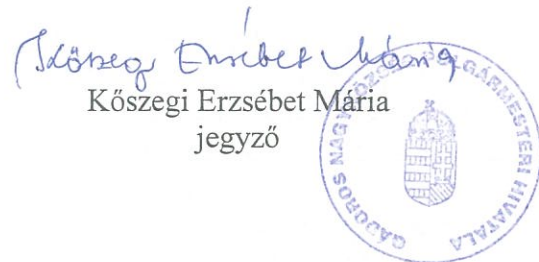 Kőszegi Erzsébet Mária
Kőszegi Erzsébet Mária
jegyző
GÁDOROS NAGYKÖZSÉG POLGÁRMESTERI HIVATALA